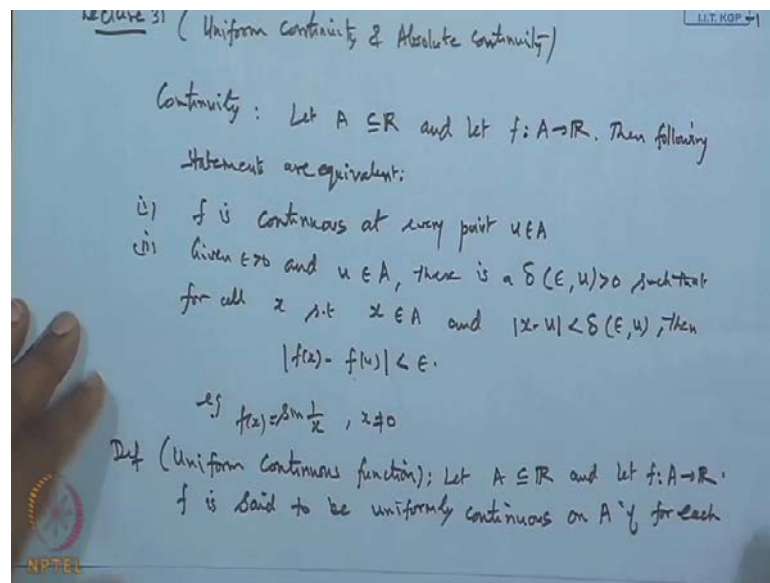 Lecture 31 ( Uniform Continuity & Absolute continuity )
I.I.T. KGP
Continuity : Let A ⊆ R and let f: A→R. Then following
statements are equivalent:
(i) f is continuous at every point u ∈ A
(ii) Given ε>0 and u ∈ A, there is a δ(ε, u)>0 such that
for all x s.t x ∈ A and |x-u| < δ(ε, u), then
|f(x) - f(u)| < ε.
eg f(x) = Sin 1/x , x≠0
Def (Uniform continuous function); Let A ⊆ R and let f: A→R.
f is said to be uniformly continuous on A if for each
NPTEL